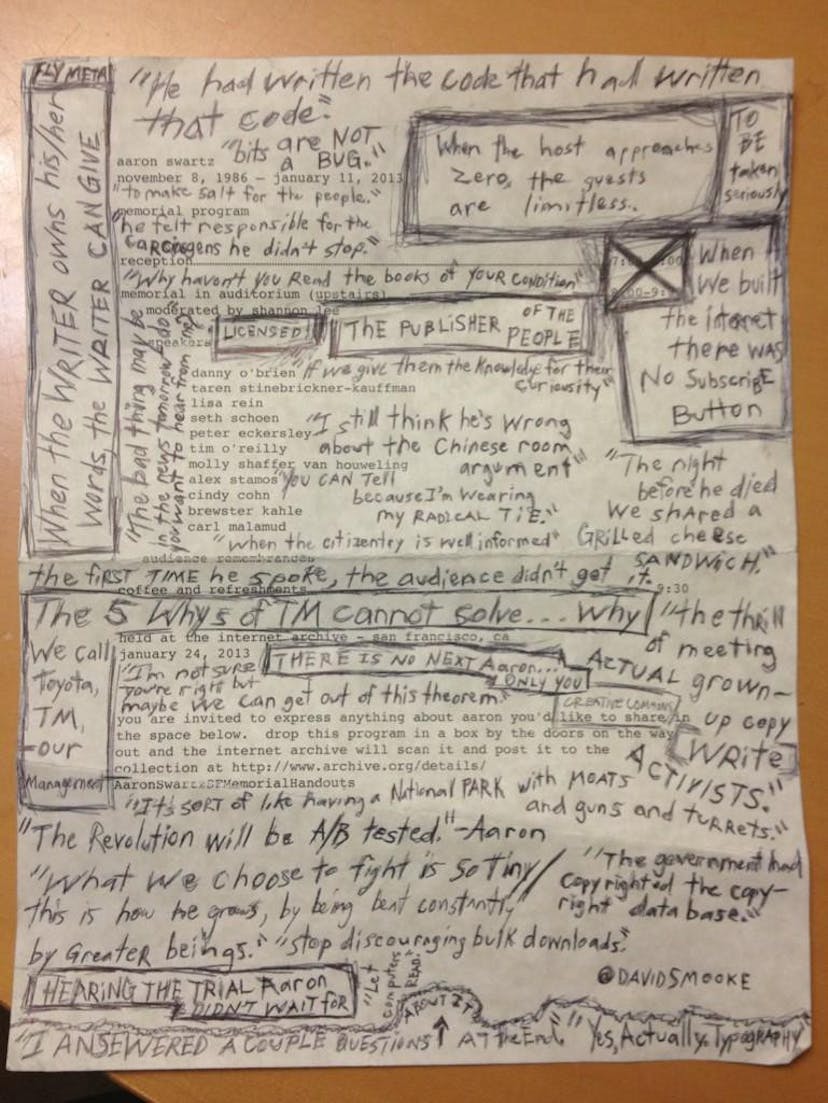 FLY META
"He had written the code that had written
that code."
When the WRITER owns his/her
words, the WRITER CAN GIVE
"bits are NOT
a BUG."
When the host approaches
zero, the guests
are limitless.
TO
BE
taken
seriously
aaron swartz
november 8, 1986 – january 11, 2013
"to make salt for the people."
memorial program
he felt responsible for the
carcinogens he didn't stop."
reception
"Why haven't you Read the books of YOUR CONDITION"
memorial in auditorium (upstairs)
moderated by shannon lee
When
We built
the internet
there was
No Subscribe
Button
LICENSED!
THE PUBLISHER OF THE
PEOPLE
speakers
"The bad thing may be
in the news tomorrow, do
you want to hear from me?"
danny o'brien
"if we give them the knowledge for their
curiosity"
taren stinebrickner-kauffman
lisa rein
seth schoen
peter eckersley
tim o'reilly
molly shaffer van houweling
alex stamos
cindy cohn
brewster kahle
carl malamud
"I still think he's wrong
about the Chinese room
argument"
"You CAN Tell
because I'm wearing
my RADICAL TiE."
"when the citizentry is well informed"
"The night
before he died
we shared a
Grilled cheese
SANDWICH."
audience remembrances
the FIRST TIME he spoke, the audience didn't get it.
coffee and refreshments
9:30
The 5 Whys of TM cannot solve... Why
We call
Toyota,
TM,
our
Management
held at the internet archive – san francisco, ca
january 24, 2013
"I'm not sure
you're right but
maybe we can get out of this theorem."
THERE IS NO NEXT Aaron...
ONLY YOU
"the thrill
of meeting
ACTUAL grown-
up copy
WRITE
ACTIVISTS."
CREATIVE COMMONS
you are invited to express anything about aaron you'd like to share in
the space below. drop this program in a box by the doors on the way
out and the internet archive will scan it and post it to the
collection at http://www.archive.org/details/
AaronSwartzSFMemorialHandouts
"It's SORT of like having a National PARK with MOATS
and guns and turrets."
"The Revolution will be A/B tested."-Aaron
"What we choose to fight is so tiny/
this is how he grows, by being beat constantly
by Greater beings."
"The government had
copyrighted the copy-
right data base."
"stop discouraging bulk downloads."
HEARING THE TRIAL Aaron
DIDN'T WAIT FOR
"Let
computers
READ."
@DAVIDSMOOKE
ABOUT IT
"I ANSEWERED A COUPLE QUESTIONS AT the End."
"Yes, Actually. Typography